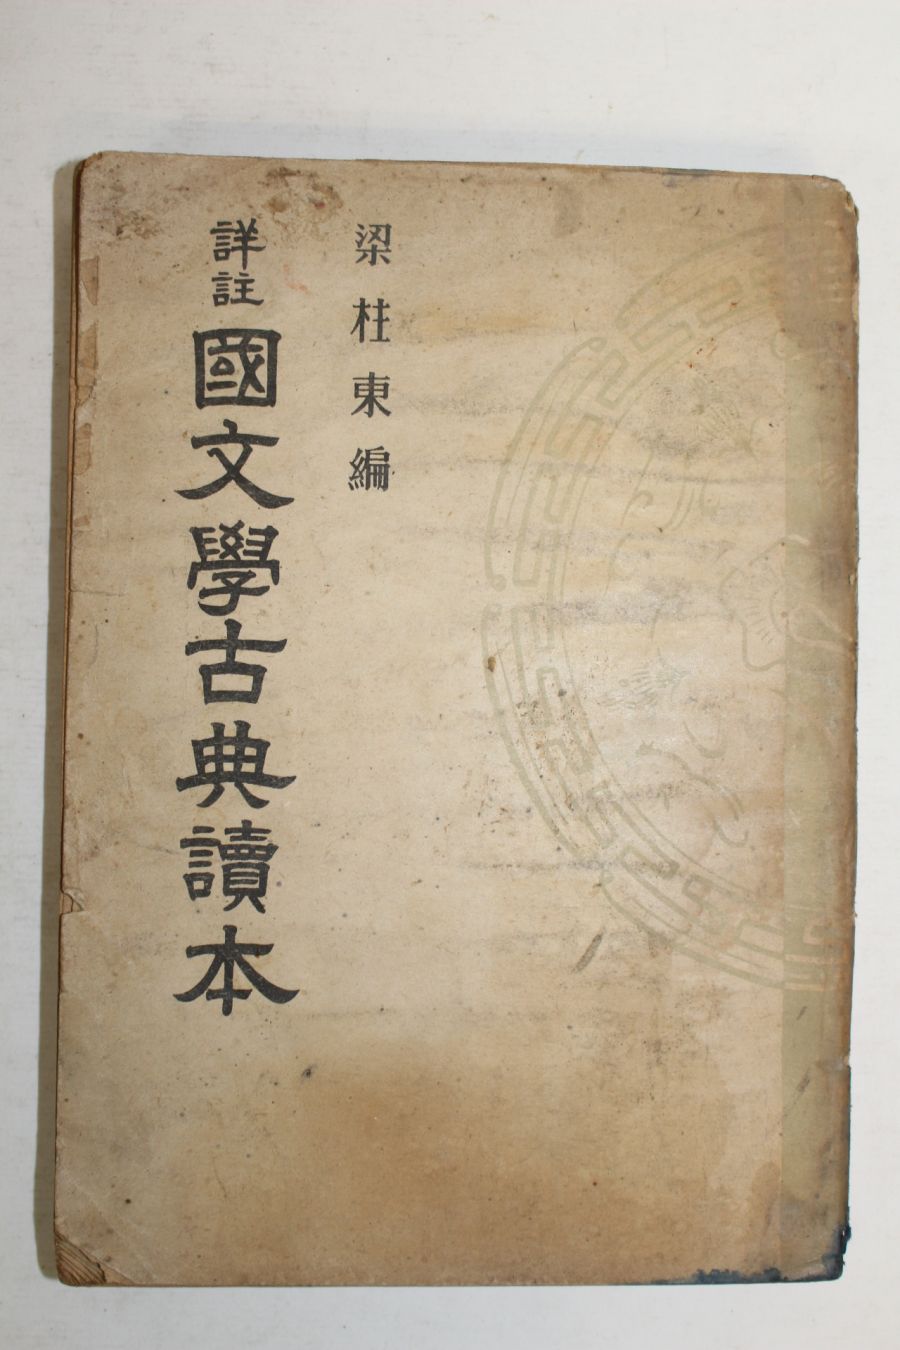 梁柱東編
詳註 國文學古典讀本